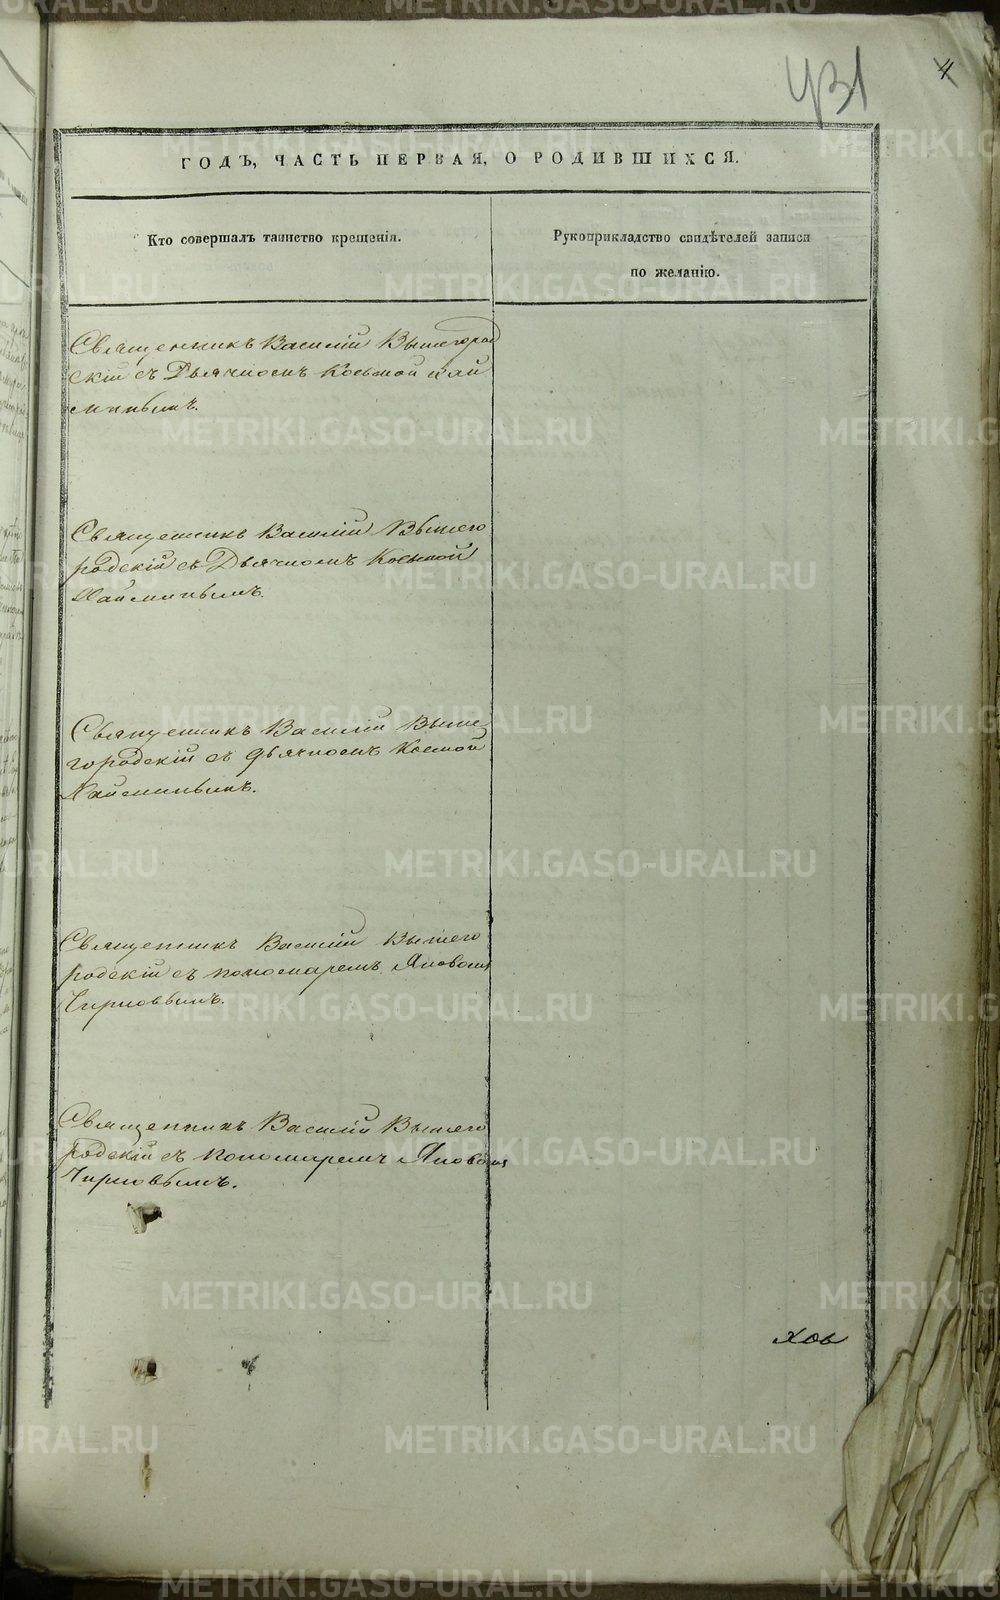 431
4
ГОДЪ, ЧАСТЬ ПЕРВАЯ, О РОДИВШИХСЯ.
Кто совершалъ таинство крещенія.
Рукоприкладство свидѣтелей записи
по желанію.
Священникъ Василій Вышегород
скій съ Дьячкомъ Косьмой Хай
минымъ.
Священникъ Василій Вышего
родскій съ Дьячкомъ Косьмой
Хайминымъ.
Священникъ Василій Выше
городскій съ дьячкомъ Космой
Хайминымъ.
Священникъ Василій Вышего
родскій съ пономаремъ Яковомъ
Чирковымъ.
Священникъ Василій Вышего
родскій съ пономаремъ Яковомъ
Чирковымъ.
ховъ
METRIKI.GASO-URAL.RU